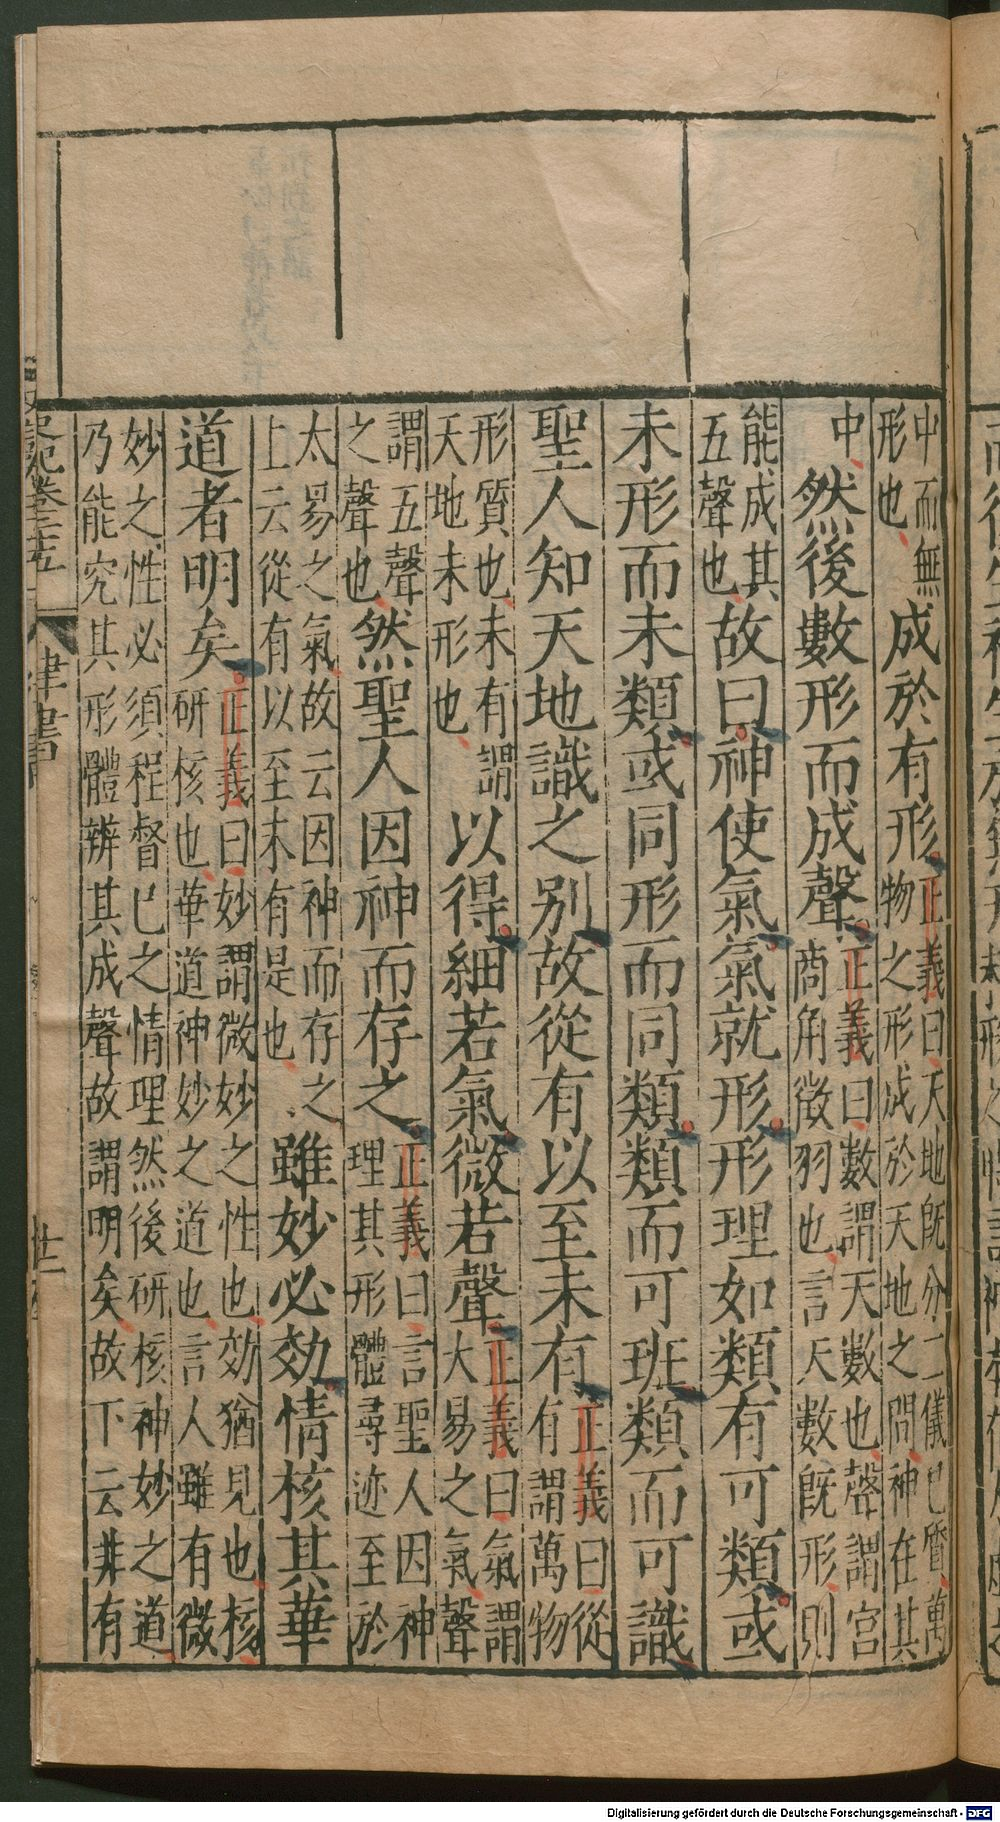 中而無形也成於有形正義曰天地既分二儀已質萬物之形成於天地之間神在其
中然後數形而成聲正義曰數謂天數也聲謂宮商角徵羽也言天數既形則
能成其五聲也故曰神使氣氣就形形理如類有可類或
未形而未類或同形而同類類而可班類而可識
聖人知天地識之別故從有以至未有正義曰從有謂萬物
形質也未有謂天地未形也以得細若氣微若聲正義曰氣謂大易之氣聲
謂五聲之聲也然聖人因神而存之正義曰言聖人因神理其形體尋迹至於
太易之氣故云因神而存之上云從有以至未有是也雖妙必効情核其華
道者明矣正義曰妙謂微妙之性也効猶見也核研核也華道神妙之道也言人雖有微
妙之性必須程督已之情理然後研核神妙之道乃能究其形體辨其成聲故謂明矣故下云非有
史記卷二十五 律書
Digitalisierung gefördert durch die Deutsche Forschungsgemeinschaft - DFG